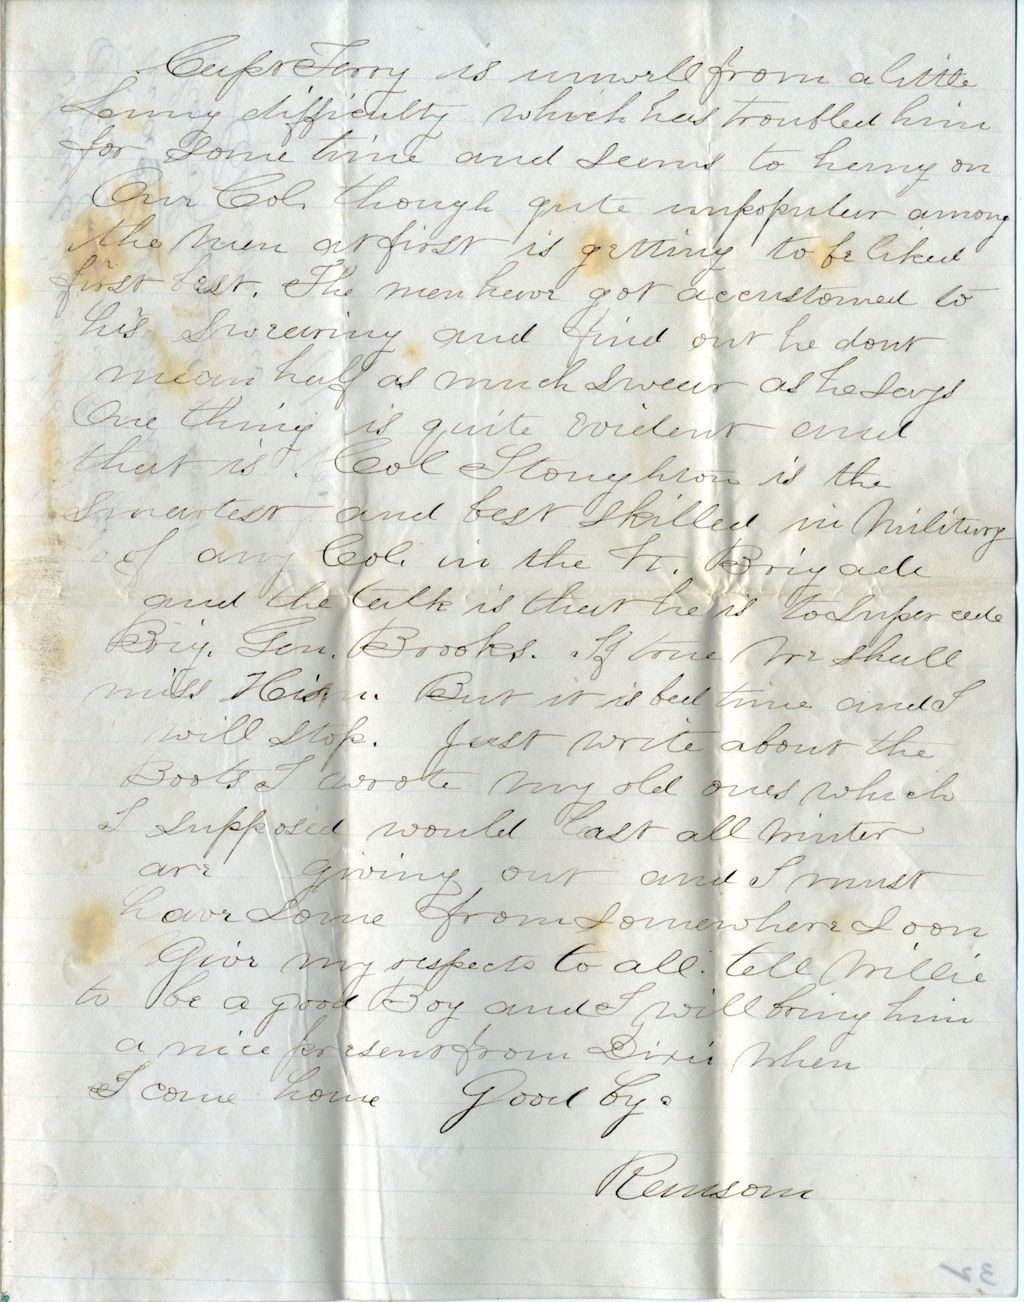 Capt Terry is unwell from a little
Lung difficulty which has troubled him
for some time and seems to hang on
Our Col. though quite unpopular among
the men at first is getting to be liked
first best. The men have got accustomed to
his swearing and find out he dont
mean half as much swear as he says
One thing is quite evident and
that is. Col Stoughton is the
smartest and best skilled in Military
of any Col. in the Vt. Brigade
and the talk is that he is to supercede
Brig. Gen. Brooks. If true we shall
miss Him. But it is bed time and I
will stop. Just write about the
Boots I wrote my old ones which
I supposed would last all winter
are giving out and I must
have some from somewhere soon
Give my respects to all. tell Willie
to be a good Boy and I will bring him
a nice present from Dixie when
I come home Good by.
Ransom
32